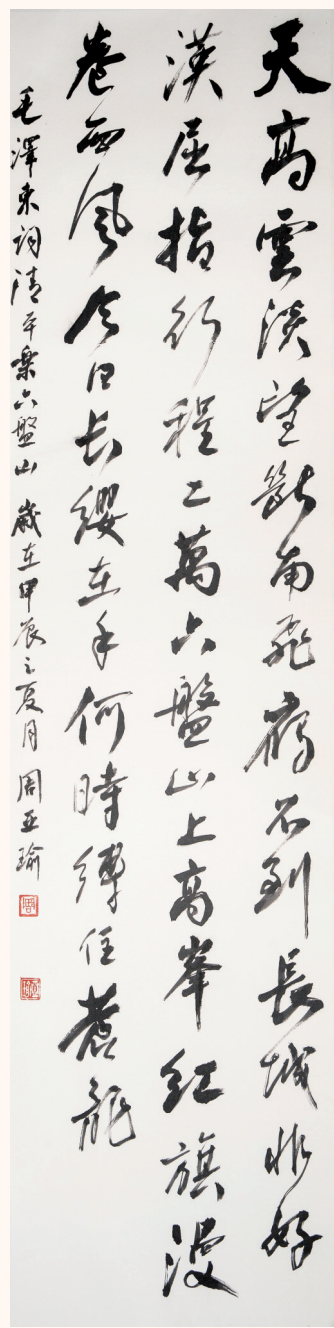 天高雲淡望斷南飛雁不到長城非好
漢屈指行程二萬六盤山上高峯紅旗漫
卷西風今日長纓在手何時縛住蒼龍
毛澤東詞清平樂六盤山 歲在甲辰之夏月 周亚瑜